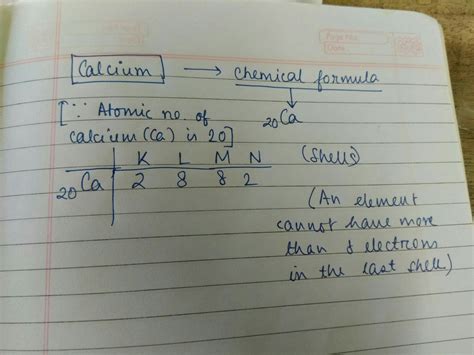 Page No.
Date
Calcium → Chemical formula
[∵ Atomic no. of
calcium (Ca) is 20]
20Ca
K L M N (Shells)
20Ca 2 8 8 2
(An element
cannot have more
than 8 electrons
in the last shell)